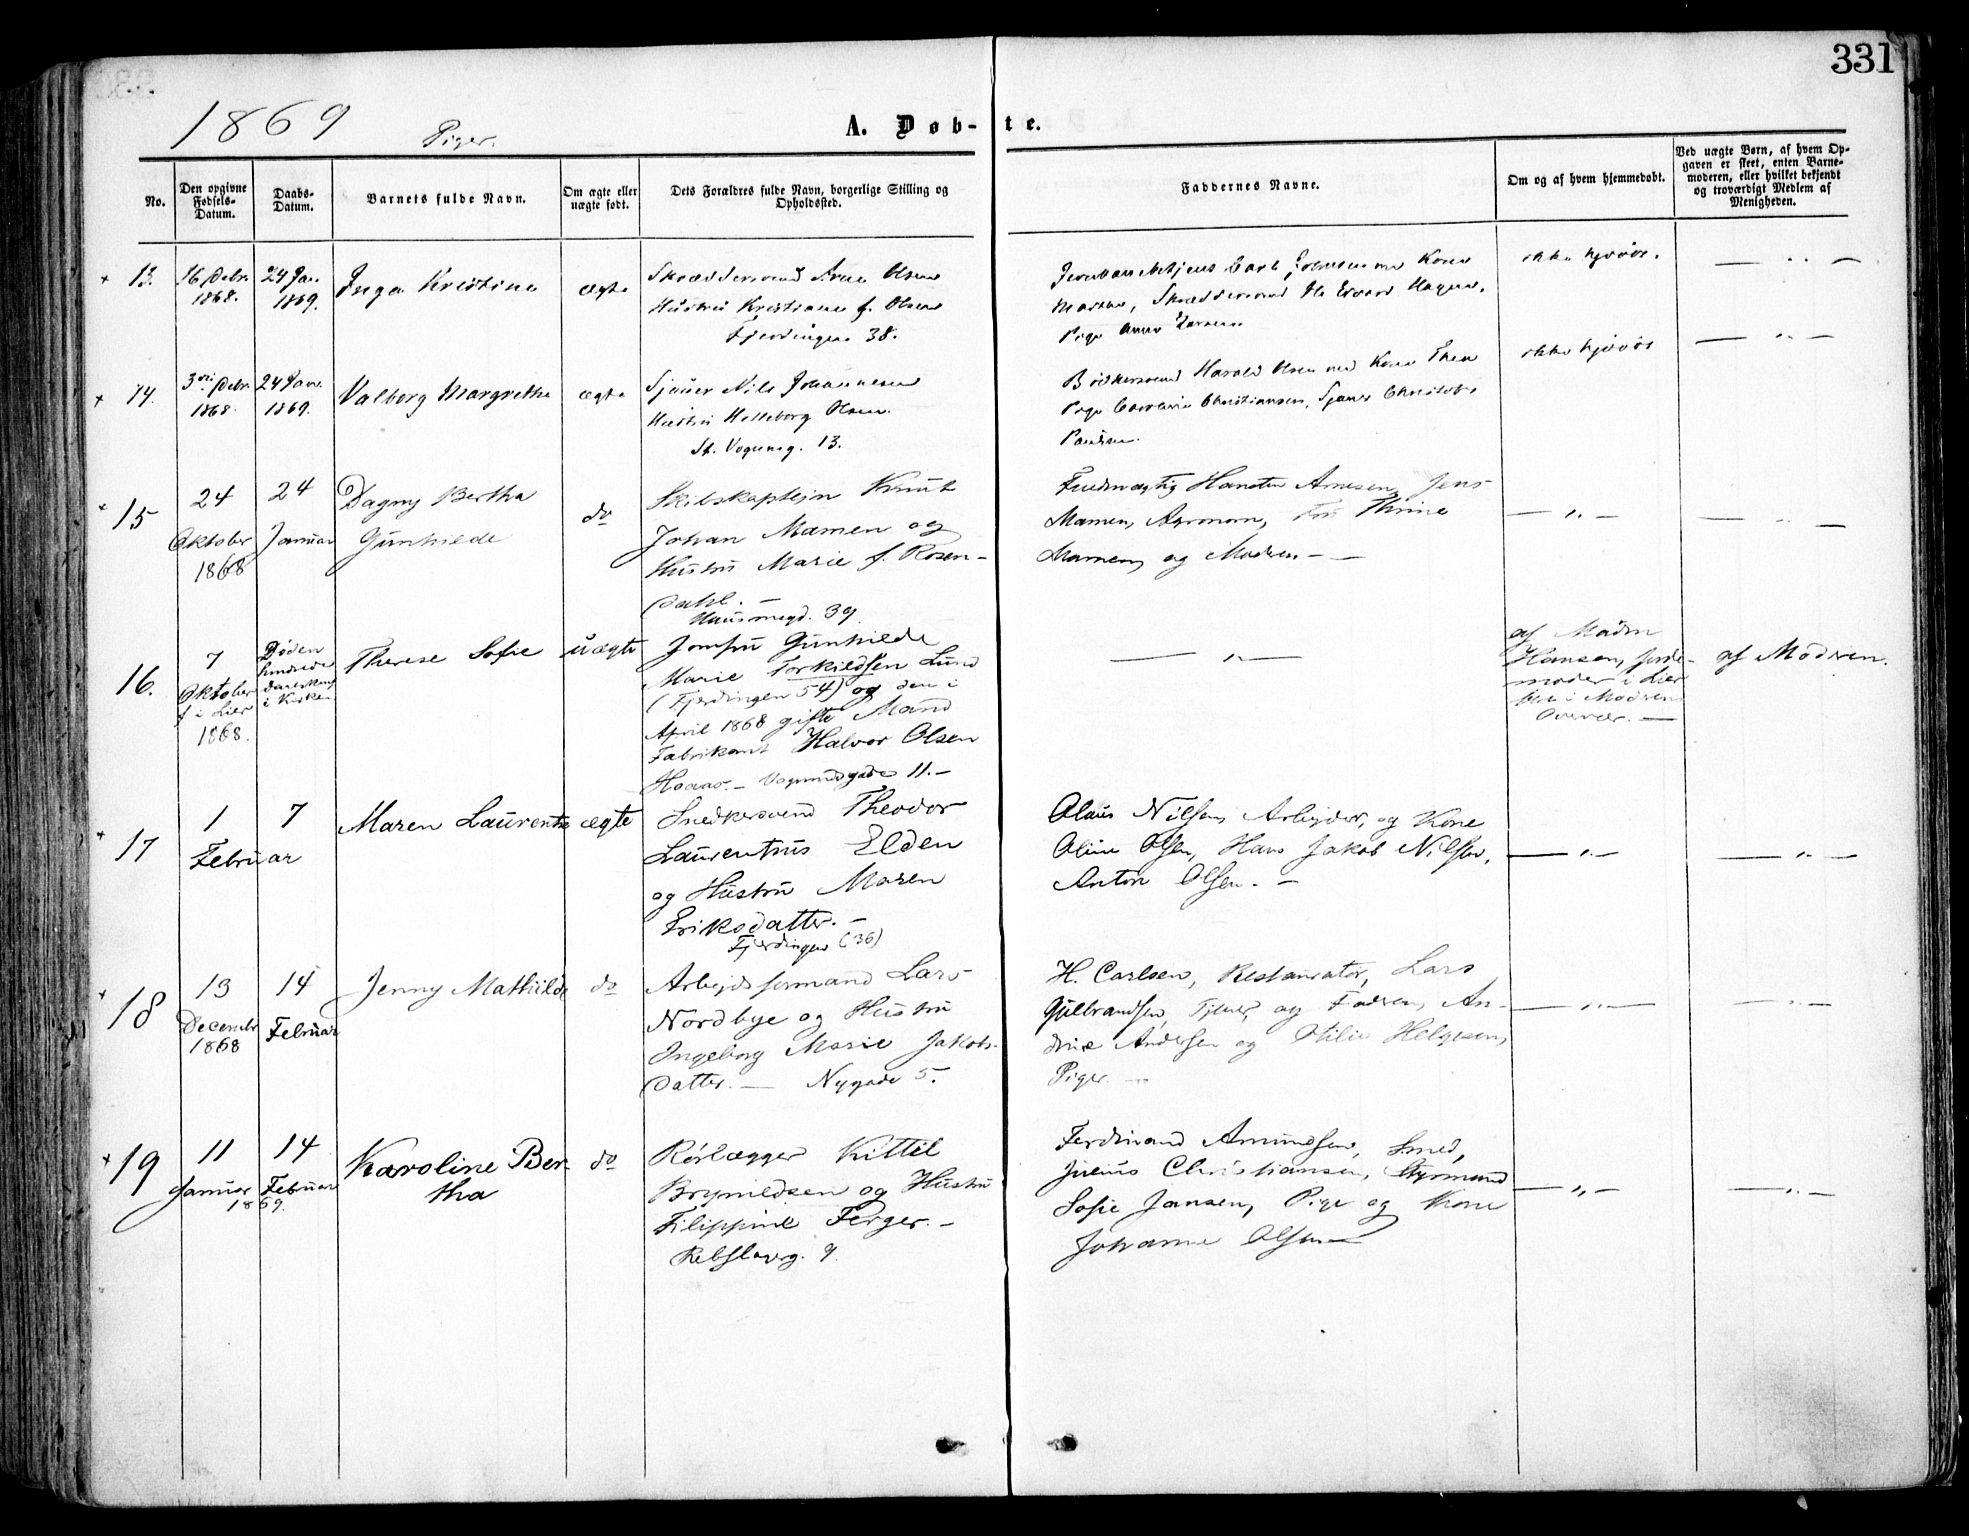 331
1869 Piger.
A. Døb-te.
No.
Den opgivne Fødsels-Datum.
Daabs-Datum.
Barnets fulde Navn.
Om ægte eller uægte født.
Dets Forældres fulde Navn, borgerlige Stilling og Opholdssted.
Faddernes Navne.
Om og af hvem hjemmedøbt.
Ved uægte Børn, af hvem Opgaven er skeet, enten Barnemoderen, eller hvilket bekjendt og troværdigt Medlem af Menigheden.
13. 16 Debr. 1868. 24 Jan. 1869. Inga Kristine ægte
Skræddersvend Arne Olsen
Hustru Kristiane f. Olsen
Fjerdingen 38.
Carl Johansen med Kone
Skræddersvend Edvard Hagen,
Pige Anna Larsen
ikke hjdøbt.
14. 3die Debr. 1868. 24 Jan. 1869. Valborg Margrethe ægte
Sjauer Nils Johannesen
Hustru Helleborg Olsen.
St. Vognmg. 13.
Bødkersvend Harald Olsen med Kone Thea
Pige Christiansen, Sjauer Christoffer
Paulsen.
ikke hjdøbt
15 24 Oktober 1868 24 Januar Dagny Bertha Gunhilde do
Skibskaptejn Knut
Johan Mamen og
Hustru Marie f. Rosen-
dahl. —
Hausmsgd. 39.
Arnesen, Jens
Mamen, Agronom, Thrine
Mamen, og Modren —
— „ —
16. 7 Oktober f i Lier 1868. Døden hindrede i Kirken Therese Sofie uægte
Jomfru Gunhilde
Marie Torkildsen Lund
(Fjerdingen 54) og den i
April 1868 gifte Mand
Fabrikant Halvor Olsen
Haaas. — Vognmdsgade 11. —
— „ —
af Madm
Hansen, Jorde-
moder i Lier
i Modrens
Overvær. —
af Modren.
17 1 7 Februar Maren Laurentse ægte
Snedkersvend Theodor
Laurentsius Elden
og Hustru Maren
Eriksdatter. —
Fjerdingen (36)
Olaus Nilsen, Arbejder, og Kone
Oline Olsen, Hans Jakob Nilsen,
Anton Olsen. —
— „ —
18 13 Decembr 1868 14 Februar Jenny Mathilde do
Arbejdsformand Lars
Nordbye og Hustru
Ingeborg Marie Jakobs-
datter. — Nygade 5.
H. Carlsen, Restauratør, Lars
Gulbrandsen, og Fadren, An-
drine Andersen og Otilie Helgesen,
Piger. —
— „ —
19 11 Januar 1869. 14 Februar Karoline Ber-
tha do
Rørlægger Kittil
Brynildsen og Hustru
Filippine Ferger. —
Rebslagerg. 9.
Ferdinand Amundsen, Smed,
Julius Christiansen, Styrmand
Sofie Jansen, Pige og Kone
Johanne Olsen —
— „ —